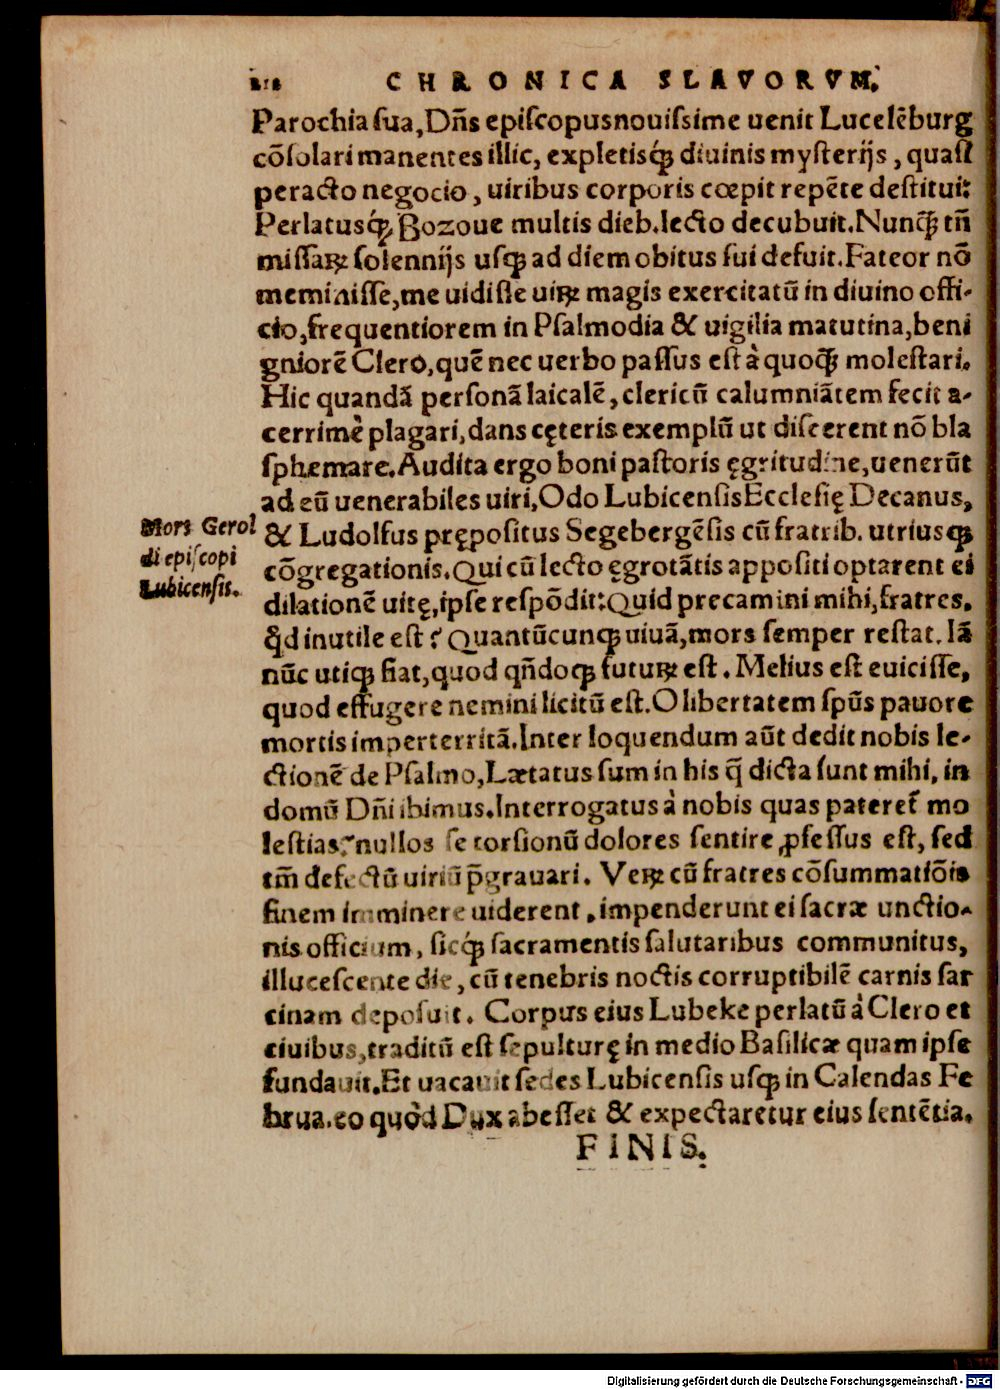 218 CHRONICA SLAVORVM.
Parochia sua, Dn̄s episcopus nouissime uenit Lucelēburg
cōsolari manentes illic, expletisq́ꝫ diuinis mysterijs, quasi
peracto negocio, uiribus corporis cœpit repēte destitui:
Perlatusq́ꝫ Bozoue multis dieb. lecto decubuit. Nunq̃ꝫ tn̄
missaꝝ solennijs usqꝫ ad diem obitus sui defuit. Fateor nō
meminisse, me uidisse uiꝝ magis exercitatū in diuino offi-
cio, frequentiorem in Psalmodia & uigilia matutina, beni
gniorē Clero, quē nec uerbo passus est à quoq̃ꝫ molestari.
Hic quandā personā laicalē, clericū calumniātem fecit a-
cerrimè plagari, dans cęteris exemplū ut discerent nō bla
sphemare. Audita ergo boni pastoris ęgritudine, uenerūt
ad eū uenerabiles uiri, Odo Lubicensis Ecclesię Decanus,
Mors Gerol
di episcopi
Lubicensis.
& Ludolfus prępositus Segebergēsis cū fratrib. utriusqꝫ
cōgregationis. Qui cū lecto ęgrotātis appositi optarent ei
dilationē uitę, ipse respōdit: Quid precamini mihi, fratres.
qd̃ inutile est? Quantūcunqꝫ uiuā, mors semper restat. Iā
nūc utiqꝫ fiat, quod qn̄doqꝫ futuꝝ est. Melius est euicisse,
quod effugere nemini licitū est. O libertatem sp̄us pauore
mortis imperterritā. Inter loquendum aūt dedit nobis le-
ctionē de Psalmo, Lætatus sum in his q̄ dicta sunt mihi, in
domū Dn̄i ibimus. Interrogatus à nobis quas pateret̃ mo
lestias? nullos se torsionū dolores sentire ꝓfessus est, sed
tm̄ defectū uiriū p̄grauari. Veꝝ cū fratres cōsummatiōis
finem imminere uiderent, impenderunt ei sacræ unctio-
nis officium, sicq́ꝫ sacramentis salutaribus communitus,
illucescente die, cū tenebris noctis corruptibilē carnis sar
cinam deposuit. Corpus eius Lubeke perlatū à Clero et
ciuibus, traditū est sepulturę in medio Basilicæ quam ipse
fundauit. Et uacauit sedes Lubicensis usqꝫ in Calendas Fe
brua. eo quòd Dux abesset & expectaretur eius sentētia.
FINIS.
Digitalisierung gefördert durch die Deutsche Forschungsgemeinschaft - DFG